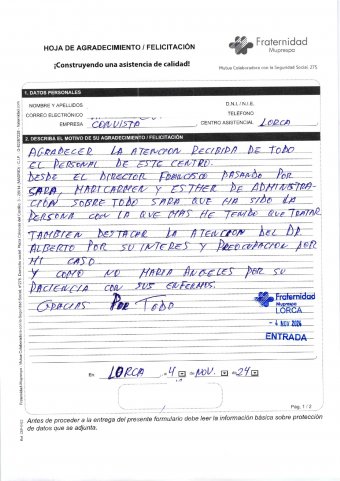 HOJA DE AGRADECIMIENTO / FELICITACIÓN
¡Construyendo una asistencia de calidad!
Fraternidad
Muprespa
Mutua Colaboradora con la Seguridad Social 275
1. DATOS PERSONALES
NOMBRE Y APELLIDOS
D.N.I. / N.I.E.
CORREO ELECTRÓNICO
TELÉFONO
EMPRESA
CENTRO ASISTENCIAL LORCA
2. DESCRIBA EL MOTIVO DE SU AGRADECIMIENTO / FELICITACIÓN
AGRADECER LA ATENCION RECIBIDA DE TODO
EL PERSONAL DE ESTE CENTRO.
DESDE EL DIRECTOR FRANCISCO PASANDO POR
SARA, MARICARMEN Y ESTHER DE ADMINISTRA-
CIÓN SOBRE TODO SARA QUE HA SIDO LA
PERSONA CON LA QUE MAS HE TENIDO QUE TRATAR
TAMBIEN DESTACAR LA ATENCION DEL DR.
ALBERTO POR SU INTERES Y PREOCUPACION POR
MI CASO.
Y COMO NO MARIA ANGELES POR SU
PACIENCIA CON SUS ENFERMOS.
GRACIAS POR TODO
Fraternidad
Muprespa
LORCA
- 4 NOV 2024
ENTRADA
En LORCA, 4 de NOV. de 24
Pág. 1 / 2
Antes de proceder a la entrega del presente formulario debe leer la información básica sobre protección
de datos que se adjunta.